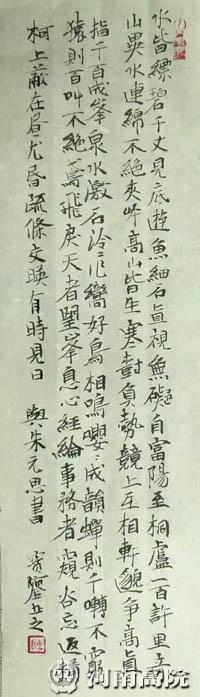 水皆縹碧千丈見底遊魚細石直視無礙自富陽至桐廬一百許里奇
山異水連綿不絕夾岸高山皆生寒樹負勢競上互相軒邈爭高直
指千百成峯泉水激石泠泠作響好鳥相鳴嚶嚶成韻蟬則千囀不窮
猿則百叫不絕鳶飛戾天者望峯息心經綸事務者窺谷忘返橫
柯上蔽在昼尤昏疏條交映有時見日 與朱元思書
河南